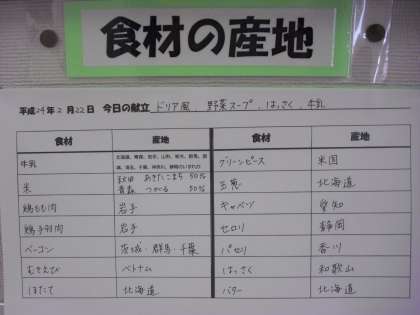 食材の産地
平成24年2月22日 今日の献立 ドリア風、野菜スープ、はっさく、牛乳
食材 産地 食材 産地
牛乳 グリーンピース 米国
米 秋田 あきたこまち 50% 玉葱 北海道
青森 つがる 50%
鶏もも肉 岩手 キャベツ 愛知
鶏手羽肉 岩手 セロリ 静岡
ベーコン 茨城・群馬・千葉 パセリ 香川
むきえび ベトナム はっさく 和歌山
ほたて 北海道 バター 北海道